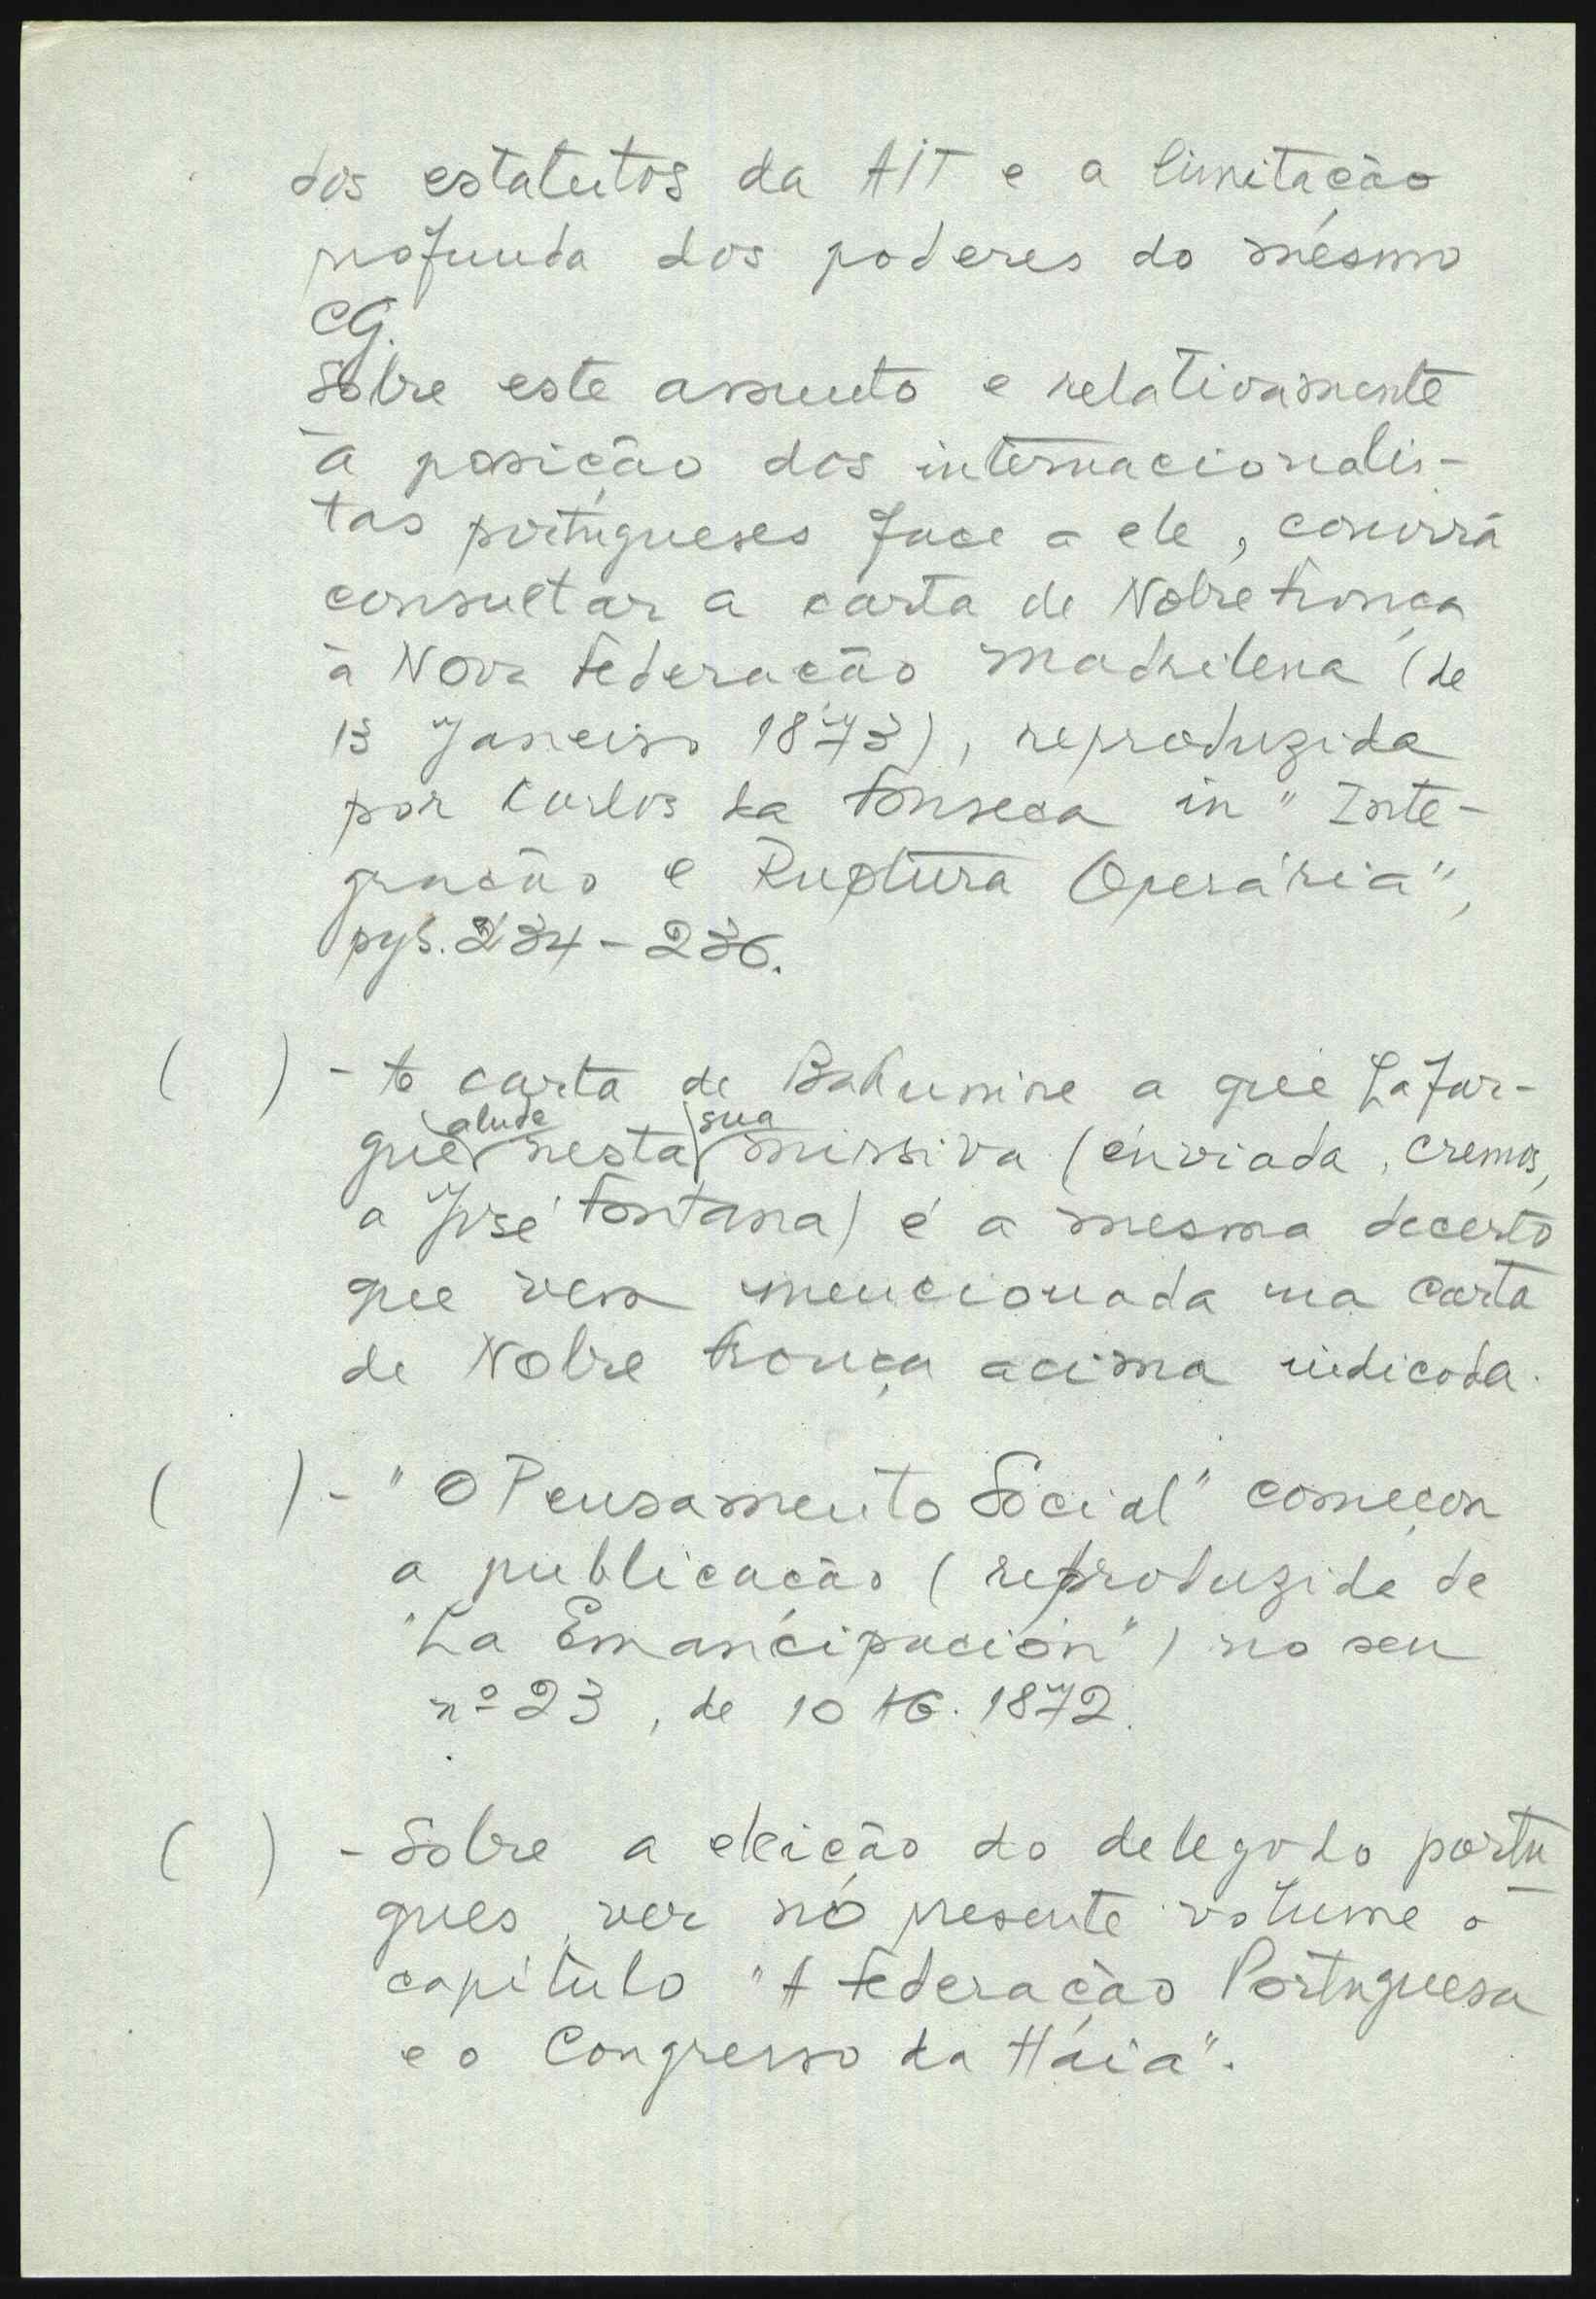 dos estatutos da AIT e a limitação
profunda dos poderes do mesmo
CG.
Sobre este assunto e relativamente
à posição dos internacionalis-
tas portugueses face a ele, convirá
consultar a carta de Nobre França
à Nova Federação Madrilena (de
13 Janeiro 1873), reproduzida
por Carlos da Fonseca in "Inte-
gração e Ruptura Operária",
pgs. 234-236.
( ) - A carta de Bakunine a que Lafar-
gue alude nesta sua missiva (enviada, cremos,
a José Fontana) é a mesma decerto
que vem mencionada na carta
de Nobre França acima indicada.
( ) - "O Pensamento Social" começou
a publicação (reproduzida de
"La Emancipación") no seu
nº 23, de 10 AG. 1872.
( ) - Sobre a eleição do delegado portu
gues, ver no presente volume o
capítulo "A Federação Portuguesa
e o Congresso da Háia".